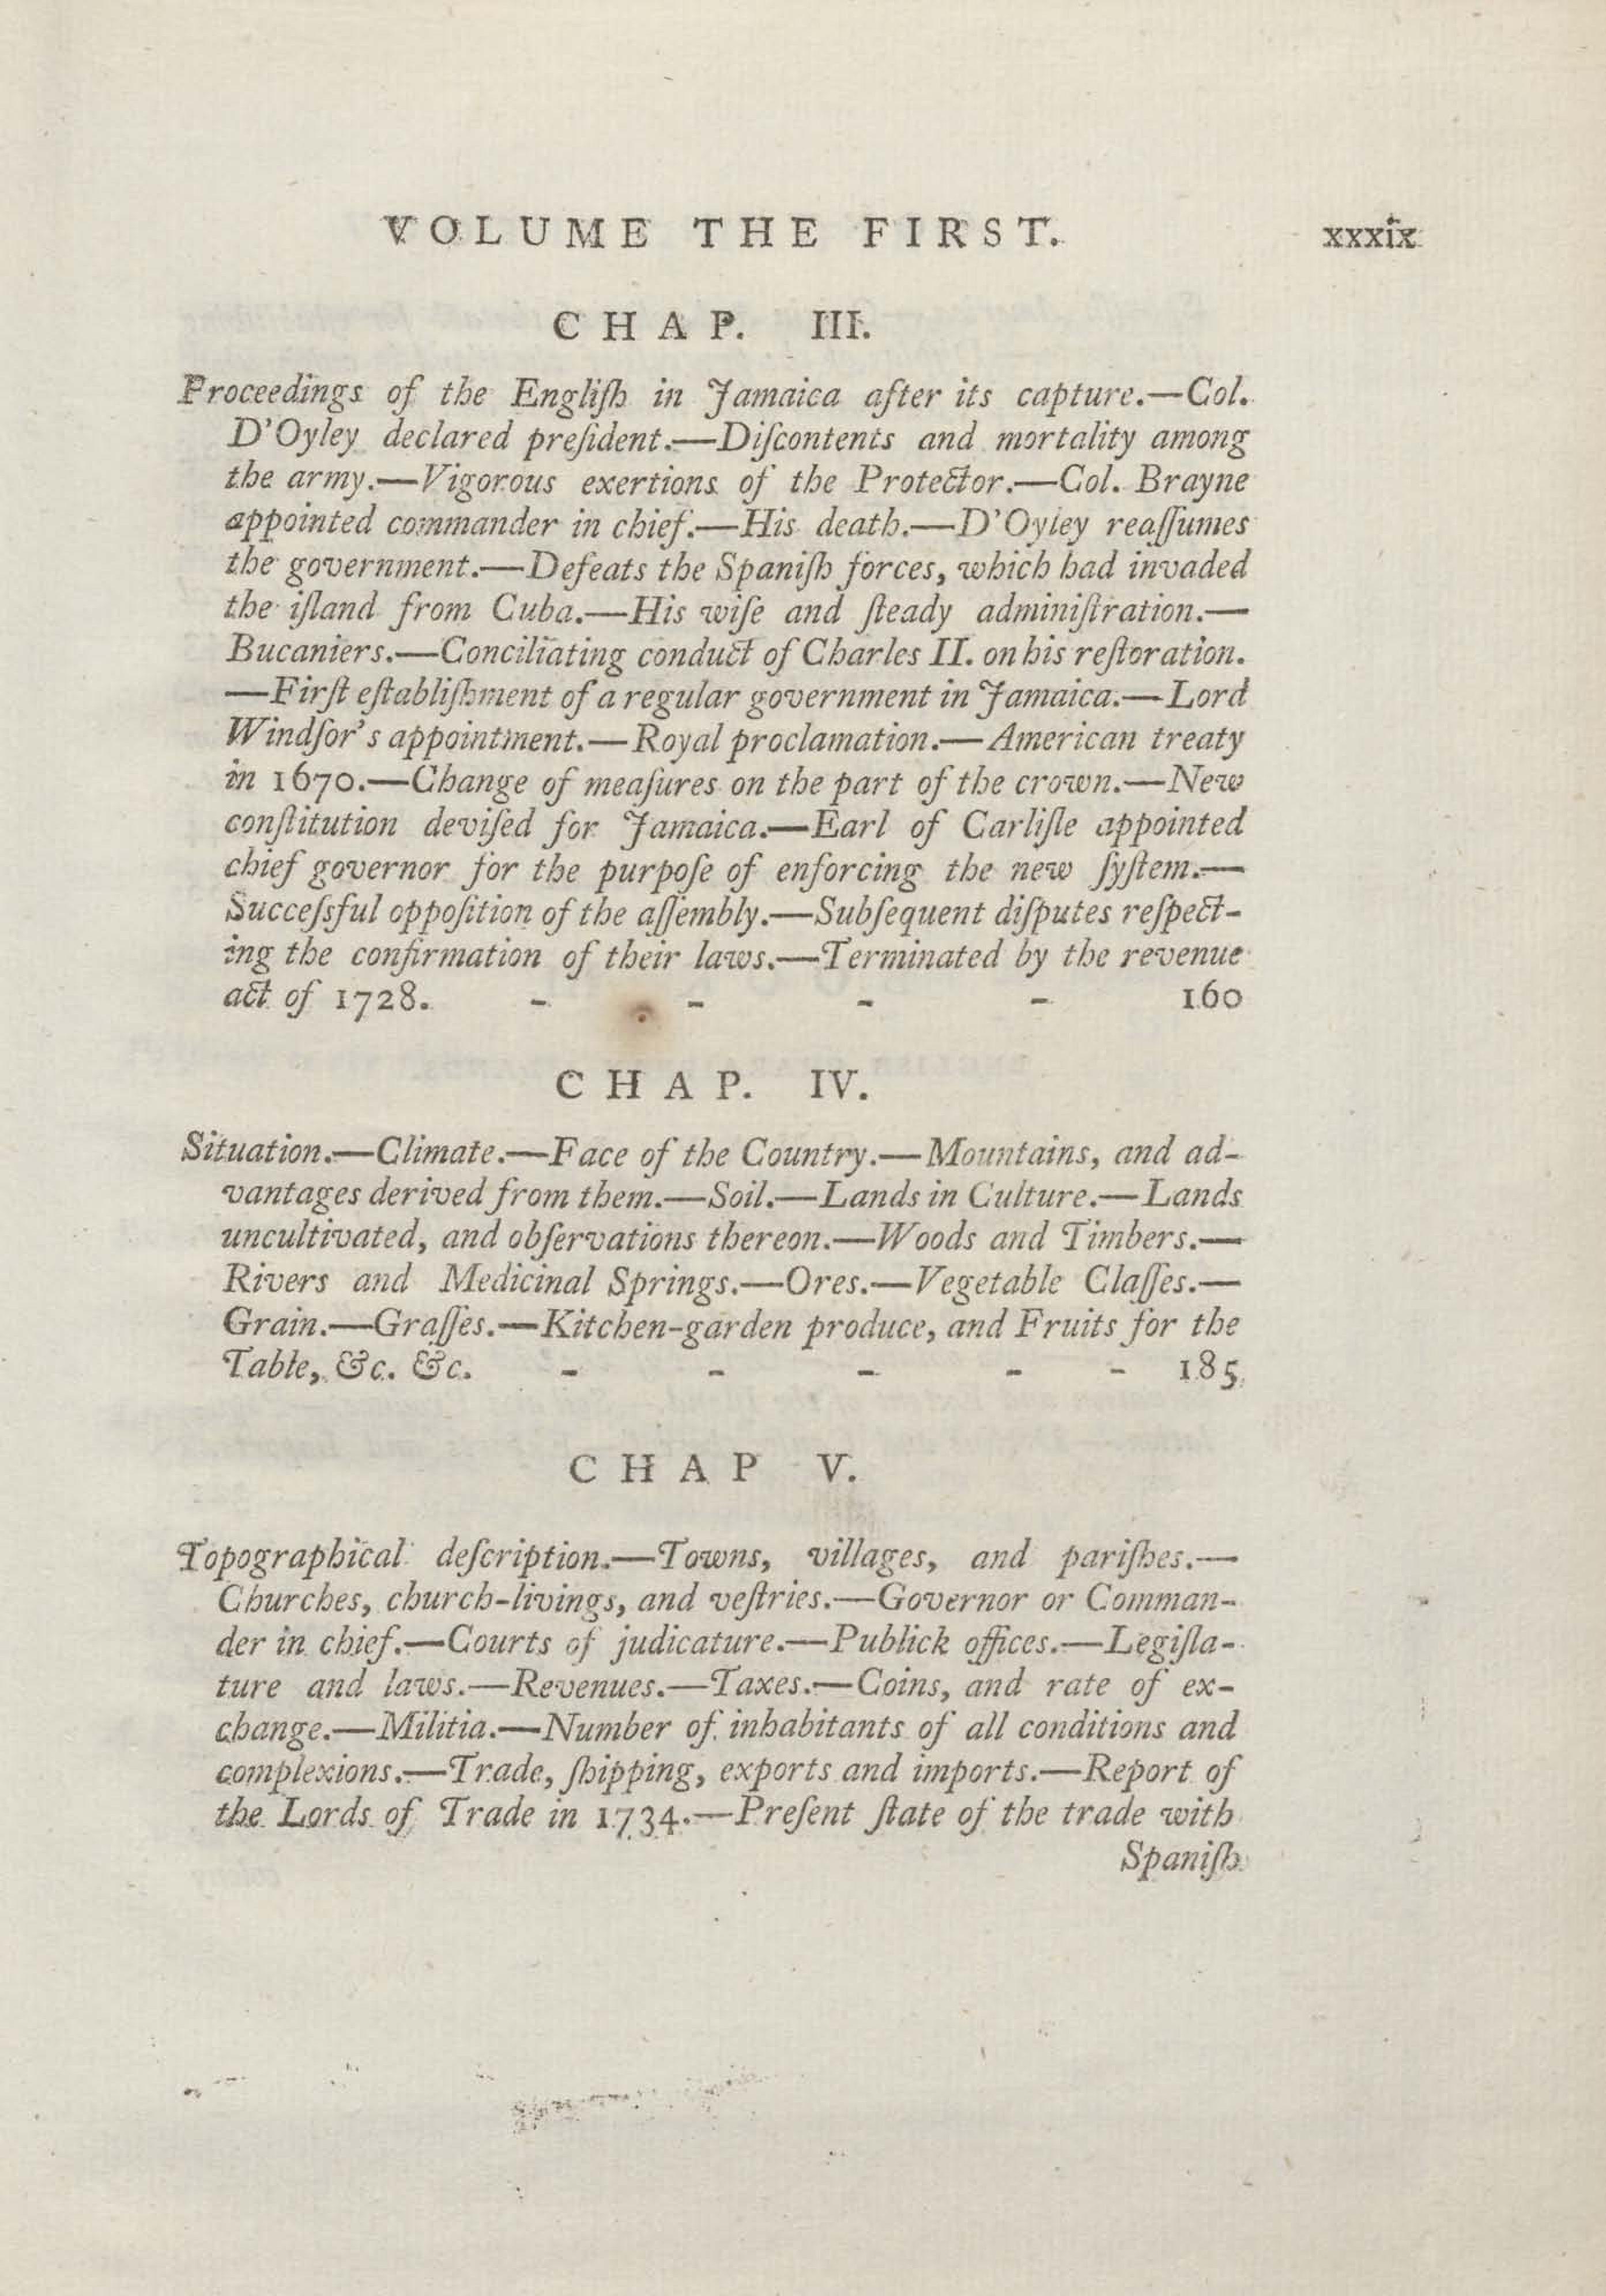 VOLUME THE FIRST. xxxix
CHAP. III.
Proceedings of the Engliſh in Jamaica after its capture.—Col.
D'Oyley declared preſident.—Diſcontents and mortality among
the army.—Vigorous exertions of the Protector.—Col. Brayne
appointed commander in chief.—His death.—D'Oyley reaſſumes
the government.—Defeats the Spaniſh forces, which had invaded
the iſland from Cuba.—His wiſe and ſteady adminiſtration.—
Bucaniers.—Conciliating conduct of Charles II. on his reſtoration.
—Firſt eſtabliſhment of a regular government in Jamaica.—Lord
Windſor's appointment.—Royal proclamation.—American treaty
in 1670.—Change of meaſures on the part of the crown.—New
conſtitution deviſed for Jamaica.—Earl of Carliſle appointed
chief governor for the purpoſe of enforcing the new ſyſtem.—
Succeſsful oppoſition of the aſſembly.—Subſequent diſputes reſpect-
ing the confirmation of their laws.—Terminated by the revenue
act of 1728. - - - - 160
CHAP. IV.
Situation.—Climate.—Face of the Country.—Mountains, and ad-
vantages derived from them.—Soil.—Lands in Culture.—Lands
uncultivated, and obſervations thereon.—Woods and Timbers.—
Rivers and Medicinal Springs.—Ores.—Vegetable Claſſes.—
Grain.—Graſſes.—Kitchen-garden produce, and Fruits for the
Table, &c. &c. - - - - - 185
CHAP V.
Topographical deſcription.—Towns, villages, and pariſhes.—
Churches, church-livings, and veſtries.—Governor or Comman-
der in chief.—Courts of judicature.—Publick offices.—Legiſla-
ture and laws.—Revenues.—Taxes.—Coins, and rate of ex-
change.—Militia.—Number of inhabitants of all conditions and
complexions.—Trade, ſhipping, exports and imports.—Report of
the Lords of Trade in 1734.—Preſent ſtate of the trade with
Spaniſh